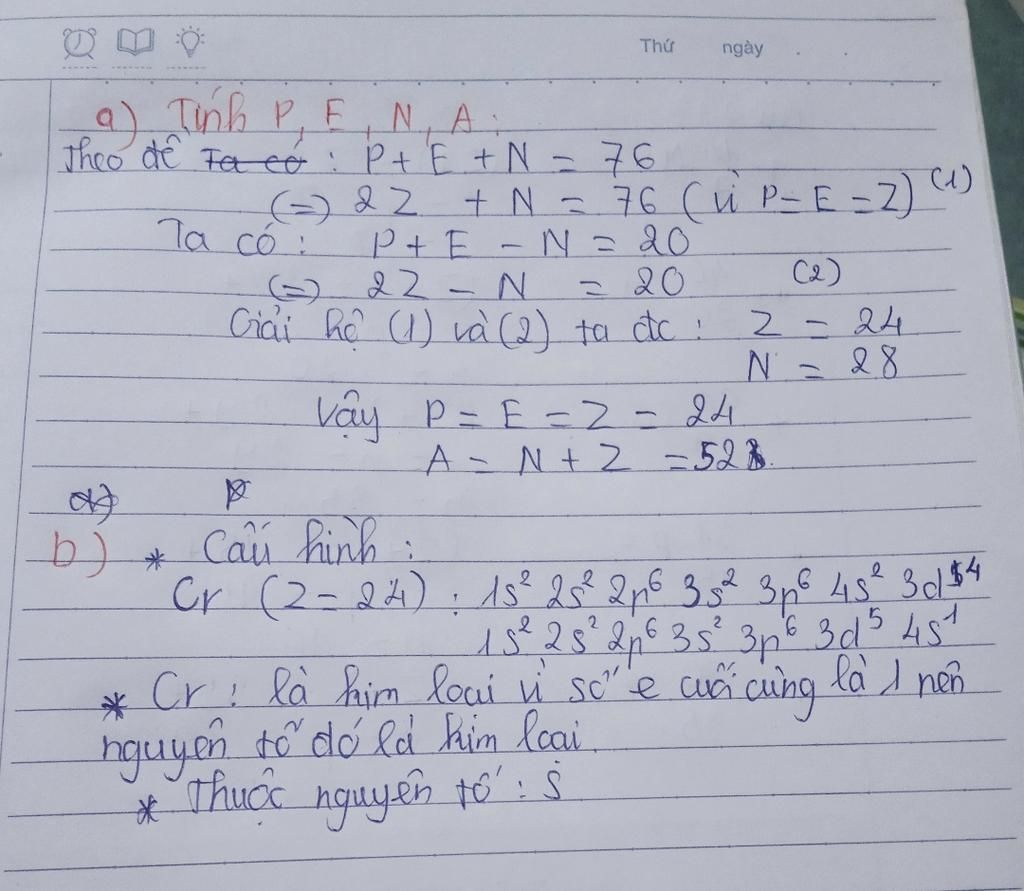 Thứ ngày . .
a) Tính P, E, N, A :
Theo đề Ta có : P + E + N = 76
(=) 2Z + N = 76 (vì P = E = Z) (1)
Ta có : P + E - N = 20
(=) 2Z - N = 20 (2)
Giải hệ (1) và (2) ta đc : Z = 24
N = 28
Vậy P = E = Z = 24
A = N + Z = 52
b) * Cấu hình :
Cr (Z = 24) : 1s² 2s² 2p⁶ 3s² 3p⁶ 4s² 3d⁴
1s² 2s² 2p⁶ 3s² 3p⁶ 3d⁵ 4s¹
* Cr : là kim loai vì số e cuối cùng là 1 nên
nguyên tố đó là kim loai.
* Thuộc nguyên tố : s